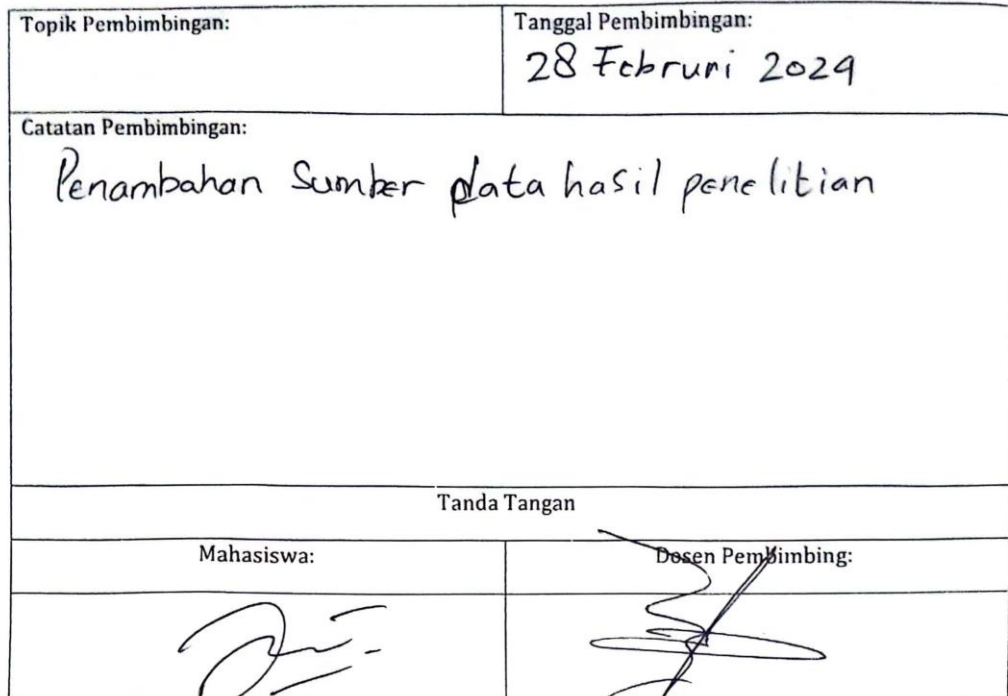 Topik Pembimbingan:
Tanggal Pembimbingan:
28 Februri 2024
Catatan Pembimbingan:
Penambahan Sumber data hasil penelitian
Tanda Tangan
Mahasiswa:
Dosen Pembimbing: